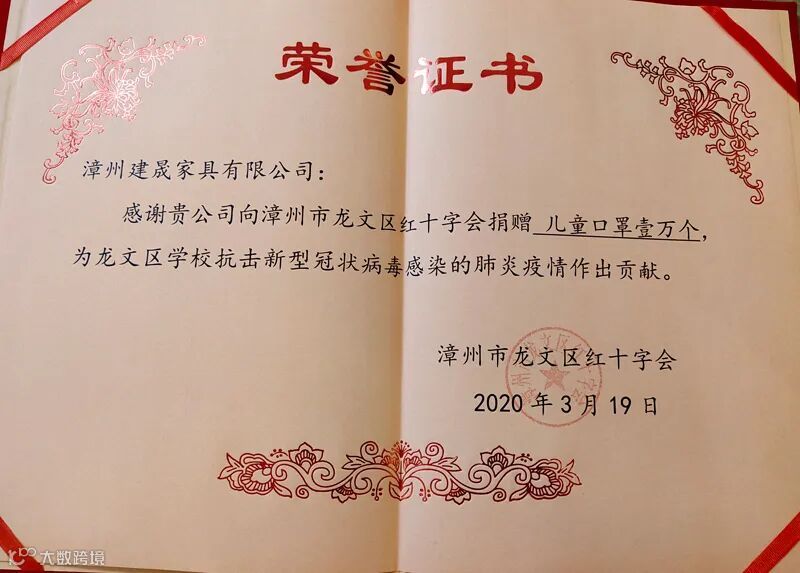 荣誉证书
漳州建晟家具有限公司：
感谢贵公司向漳州市龙文区红十字会捐赠 儿童口罩壹万个，
为龙文区学校抗击新型冠状病毒感染的肺炎疫情作出贡献。
漳州市龙文区红十字会
2020年3月19日
大数跨境